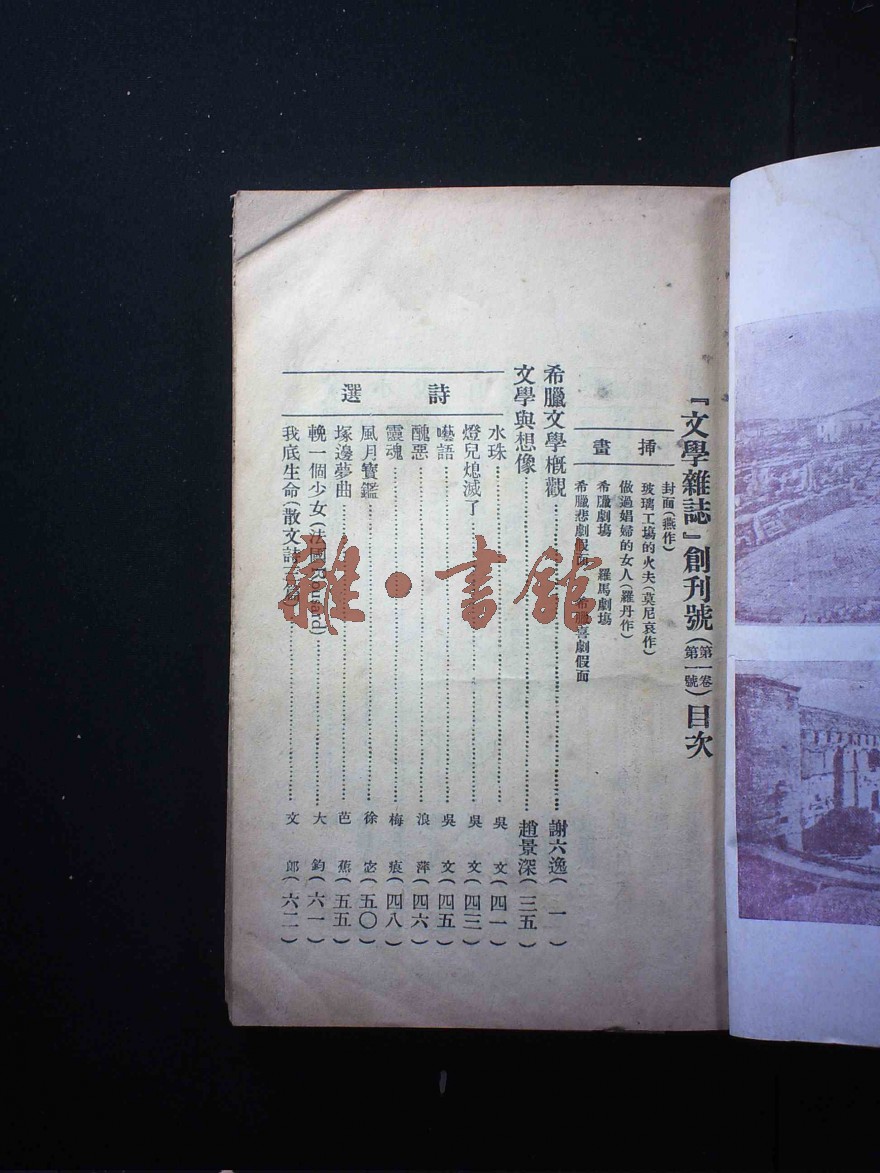 『文學雜誌』創刊號(第一卷第一號)目次
挿畫
封面(燕作)
玻璃工塲的火夫(莫尼哀作)
做過娼婦的女人(羅丹作)
希臘劇塲 羅馬劇塲
希臘悲劇假面 希臘喜劇假面
希臘文學概觀……謝六逸(一)
文學與想像……趙景深(三五)
詩選
水珠……吳文(四一)
燈兒熄滅了……吳文(四三)
囈語……吳文(四五)
醜惡……浪萍(四六)
靈魂……梅痕(四八)
風月寶鑑……徐宓(五〇)
塚邊夢曲……芭蕉(五五)
輓一個少女(法國Rousard)……大鈞(六一)
我底生命(散文詩 篇)……文郎(六二)
雜·書館